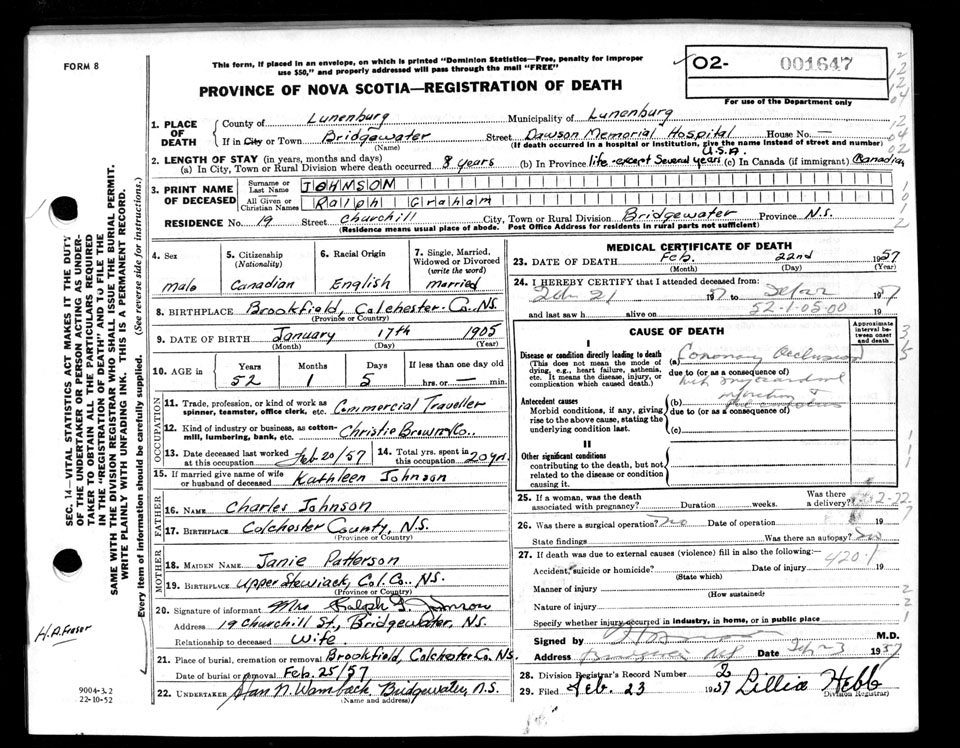 FORM 8
This form, if placed in an envelope, on which is printed "Dominion Statistics—Free, penalty for improper
use $50," and properly addressed will pass through the mail "FREE"
PROVINCE OF NOVA SCOTIA—REGISTRATION OF DEATH
02- 001647
For use of the Department only
1. PLACE OF DEATH
County of Lunenburg Municipality of Lunenburg
If in City or Town Bridgewater Street Dawson Memorial Hospital House No. —
(Name) (If death occurred in a hospital or institution, give the name instead of street and number)
2. LENGTH OF STAY (in years, months and days) U.S.A.
(a) In City, Town or Rural Division where death occurred 8 years (b) In Province life-except Several years (c) In Canada (if immigrant) Canadian
3. PRINT NAME OF DECEASED
Surname or Last Name JOHNSON
All Given or Christian Names Ralph Graham
RESIDENCE No. 19 Street Churchill City, Town or Rural Division Bridgewater Province N.S.
(Residence means usual place of abode. Post Office Address for residents in rural parts not sufficient)
4. Sex male
5. Citizenship (Nationality) Canadian
6. Racial Origin English
7. Single, Married, Widowed or Divorced (write the word) married
8. BIRTHPLACE Brookfield, Colchester Co. N.S.
(Province or Country)
9. DATE OF BIRTH January 17th 1905
(Month) (Day) (Year)
10. AGE in Years 52 Months 1 Days 5 If less than one day old hrs. or — min.
OCCUPATION
11. Trade, profession, or kind of work as spinner, teamster, office clerk, etc. Commercial Traveller
12. Kind of industry or business, as cotton-mill, lumbering, bank, etc. Christie Brown Co.
13. Date deceased last worked at this occupation Feb 20/57
14. Total yrs. spent in this occupation 20 yr.
15. If married give name of wife or husband of deceased Kathleen Johnson
FATHER
16. NAME Charles Johnson
17. BIRTHPLACE Colchester County, N.S.
(Province or Country)
MOTHER
18. MAIDEN NAME Janie Patterson
19. BIRTHPLACE Upper Stewiack, Col. Co., N.S.
(Province or Country)
20. Signature of informant Mrs Ralph G. Johnson
Address 19 Churchill St., Bridgewater, N.S.
Relationship to deceased Wife.
21. Place of burial, cremation or removal Brookfield, Colchester Co. N.S.
Date of burial or removal Feb. 25/57
22. UNDERTAKER Stan N. Wambach, Bridgewater, N.S.
(Name and address)
MEDICAL CERTIFICATE OF DEATH
23. DATE OF DEATH Feb. 22nd 1957
(Month) (Day) (Year)
24. I HEREBY CERTIFY that I attended deceased from:
21 1957 to 1957
and last saw h alive on 19
52-1-05-00
CAUSE OF DEATH
Approximate interval between onset and death
I
Disease or condition directly leading to death
(This does not mean the mode of dying, e.g., heart failure, asthenia, etc. It means the disease, injury, or complication which caused death.)
(a) Coronary Occlusion
due to (or as a consequence of)
Antecedent causes
Morbid conditions, if any, giving rise to the above cause, stating the underlying condition last.
(b)
due to (or as a consequence of)
(c)
II
Other significant conditions
contributing to the death, but not related to the disease or condition causing it.
25. If a woman, was the death associated with pregnancy? Duration weeks. Was there a delivery?
26. Was there a surgical operation? no Date of operation 19
State findings Was there an autopsy? no
27. If death was due to external causes (violence) fill in also the following:—
420.1
Accident, suicide or homicide? Date of injury 19
(State which)
Manner of injury
(How sustained)
Nature of injury
Specify whether injury occurred in industry, in home, or in public place
Signed by M.D.
Address Bridgewater NS Date Feb 23 1957
28. Division Registrar's Record Number 2
29. Filed Feb. 23 1957 Lillia Hebb
(Division Registrar)
SEC. 14—VITAL STATISTICS ACT MAKES IT THE DUTY
OF THE UNDERTAKER OR PERSON ACTING AS UNDER-
TAKER TO OBTAIN ALL THE PARTICULARS REQUIRED
IN THE "REGISTRATION OF DEATH" AND TO FILE THE
SAME WITH THE DIVISION REGISTRAR WHO SHALL ISSUE THE BURIAL PERMIT.
WRITE PLAINLY WITH UNFADING INK. THIS IS A PERMANENT RECORD.
Every item of information should be carefully supplied. (See reverse side for instructions.)
H.A. Fraser
9004-3.2
22-10-52